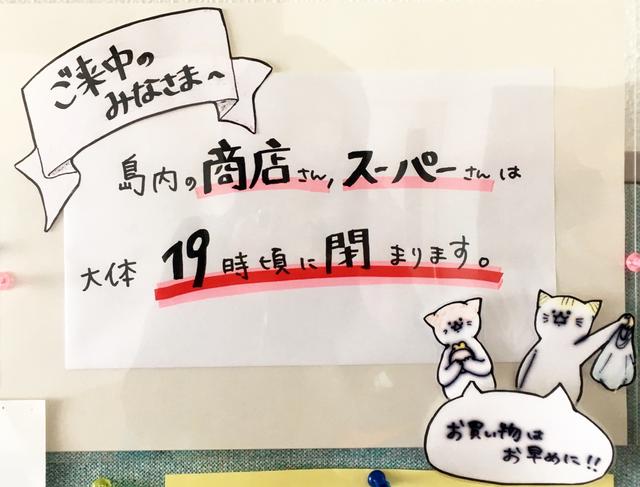 ご来中の
みなさまへ
島内の商店さん,スーパーさんは
大体 19時頃に閉まります。
お買い物は
お早めに!!